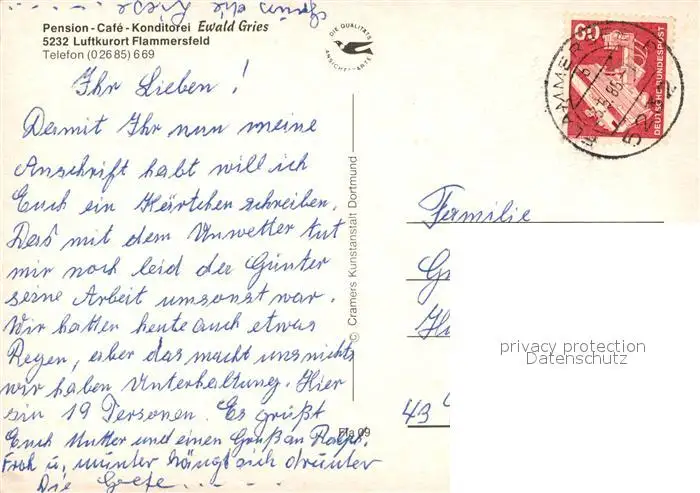 Pension - Café - Konditorei Ewald Gries
5232 Luftkurort Flammersfeld
Telefon (02685) 669
DIE QUALITÄTS
ANSICHTSKARTE
Ihr Lieben!
Damit Ihr nun meine
Anschrift habt will ich
Euch ein Kärtchen schreiben.
Das mit dem Unwetter tut
mir noch leid der Günter
seine Arbeit umsonst war.
Wir hatten heute auch etwas
Regen, aber das macht uns nichts
wir haben Unterhaltung. Hier
sin 19 Personen. Es grüßt
Euch Mutter und einen Gruß an
Froh u. munter hängt sich drunter
Die
© Cramers Kunstanstalt Dortmund
Fla 09
60
DEUTSCHE BUNDESPOST
5232
Familie
43
privacy protection
Datenschutz